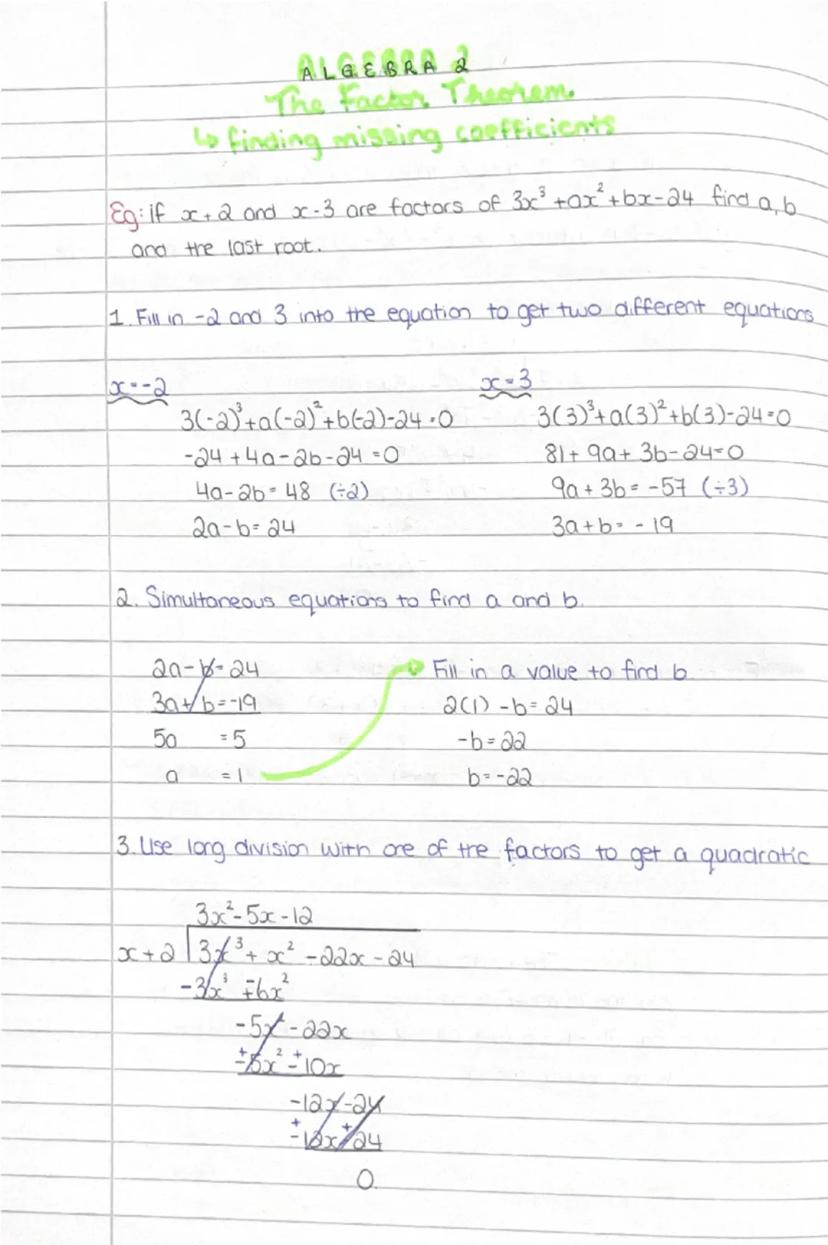 ALGEBRA 2
The Factor Theorem
↳ finding missing coefficients
Eg: if x+2 and x-3 are factors of 3x³+ax²+bx-24 find a, b
and the last root.
1. Fill in -2 and 3 into the equation to get two different equations
x=-2
3(-2)³+a(-2)²+b(-2)-24=0
-24+4a-2b-24=0
4a-2b=48 (÷2)
2a-b=24
x=3
3(3)³+a(3)²+b(3)-24=0
81+9a+3b-24=0
9a+3b=-57 (÷3)
3a+b=-19
2. Simultaneous equations to find a and b.
2a-b=24
3a+b=-19
5a =5
a =1
Fill in a value to find b
2(1)-b=24
-b=22
b=-22
3. Use long division with one of the factors to get a quadratic
3x²-5x-12
x+2 3x³+x²-22x-24
-3x³ -+6x²
-5x²-22x
+-5x² -+10x
-12x-24
+-12x +-24
0